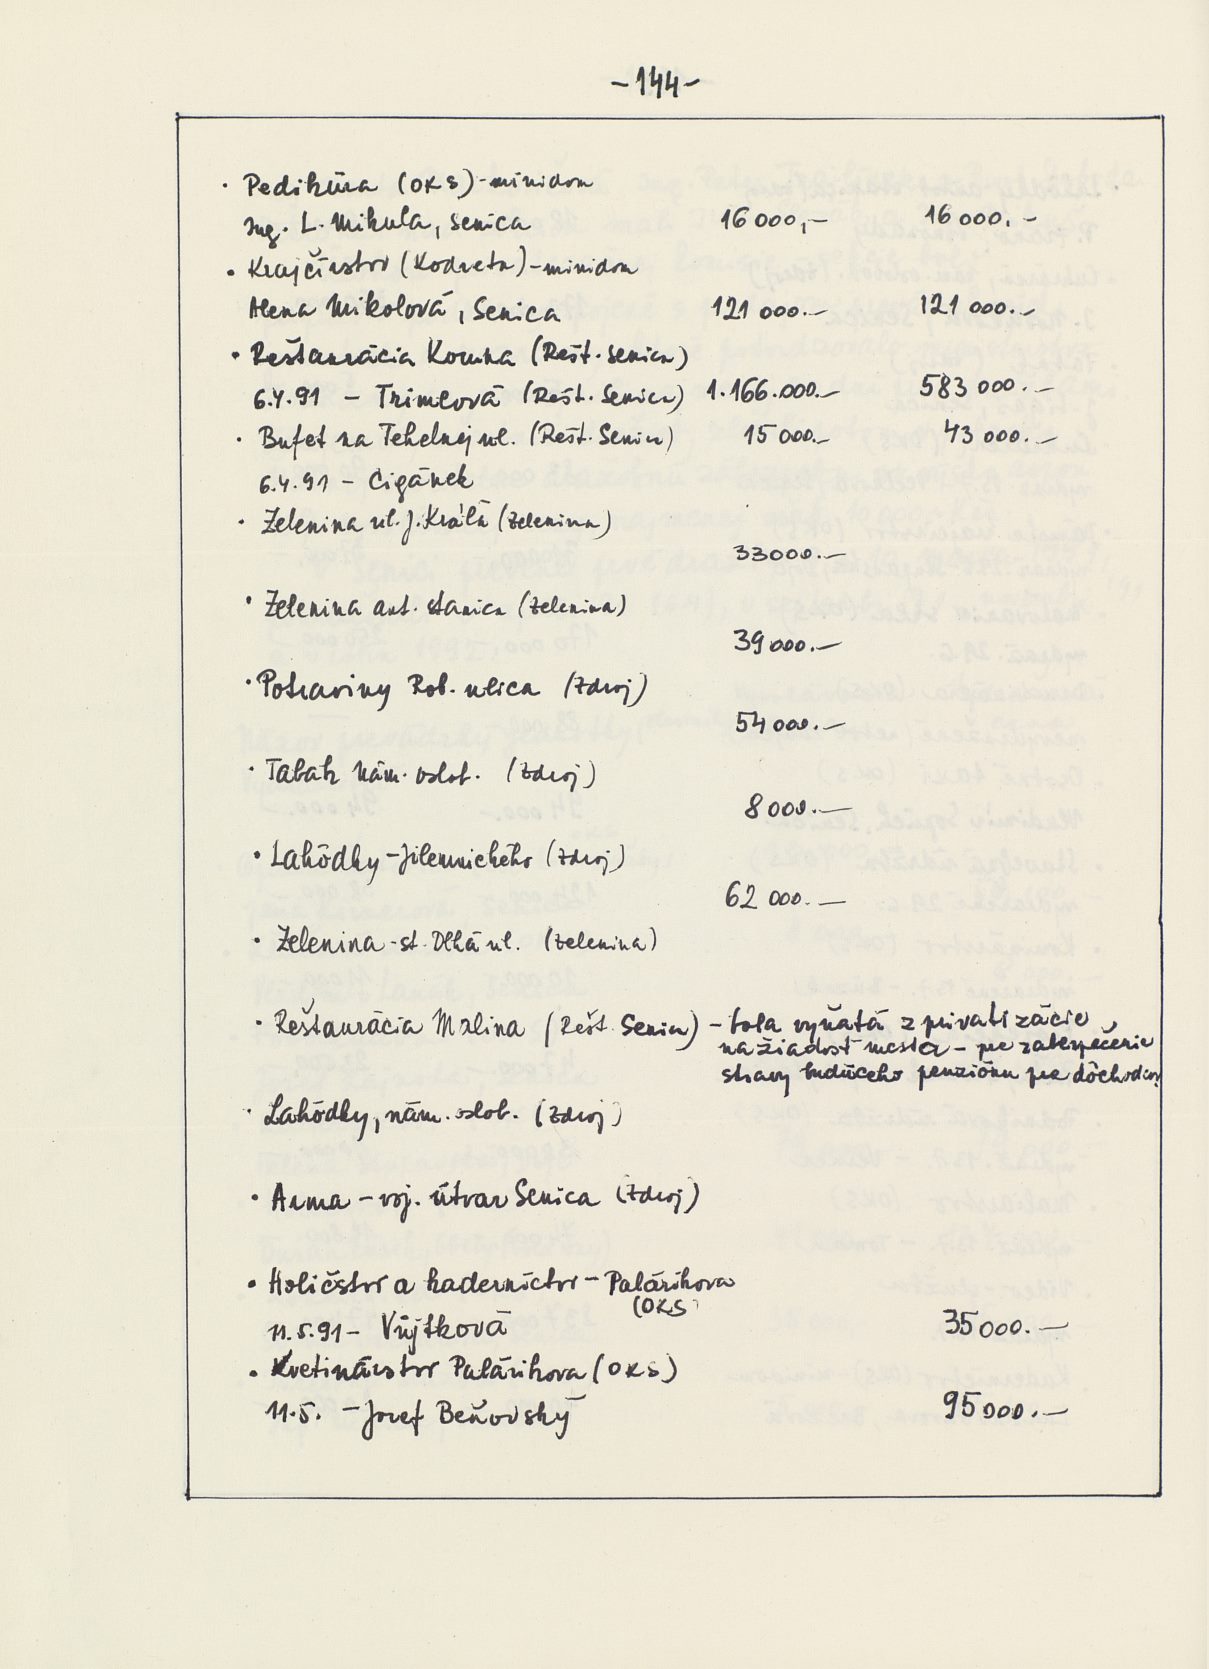 -144-
· Pedikúra (OKS)-minidom
Ing. L. Mikula, Senica 16 000,- 16 000.-
· Krajčírstvo (Kodreta)-minidom
Alena Mikolová, Senica 121 000.- 121 000.-
· Reštaurácia Koruna (Rešt. Senica)
6.4.91 - Trimlová (Rešt. Senica) 1.166.000.- 583 000.-
· Bufet na Tehelnej ul. (Rešt. Senica) 15 000.- 43 000.-
6.4.91 - Cigánek
· Zelenina ul. J. Kráľa (Zelenina)
33000.-
· Zelenina aut. stanica (Zelenina)
39 000.-
· Potraviny Rob. ulica (Zdroj)
54 000.-
· Tabak Nám. oslob. (Zdroj)
8 000.-
· Lahôdky-Jilemnického (Zdroj)
62 000.-
· Zelenina-st. Dlhá ul. (Zelenina)
· Reštaurácia Mlina (Rešt. Senica) - bola vyňatá z privatizácie,
na žiadosť mesta - pre zabezpečenie
stravy budúceho penziónu pre dôchodcov
· Lahôdky, nám. oslob. (Zdroj)
· Arma - voj. útvar Senica (Zdroj)
· Holičstvo a kaderníctvo - Palárikova
(OKS)
11.5.91 - Vůjtková 35000.-
· Kvetinárstvo Palárikova (OKS)
11.5. - Jozef Beňovský 95000.-